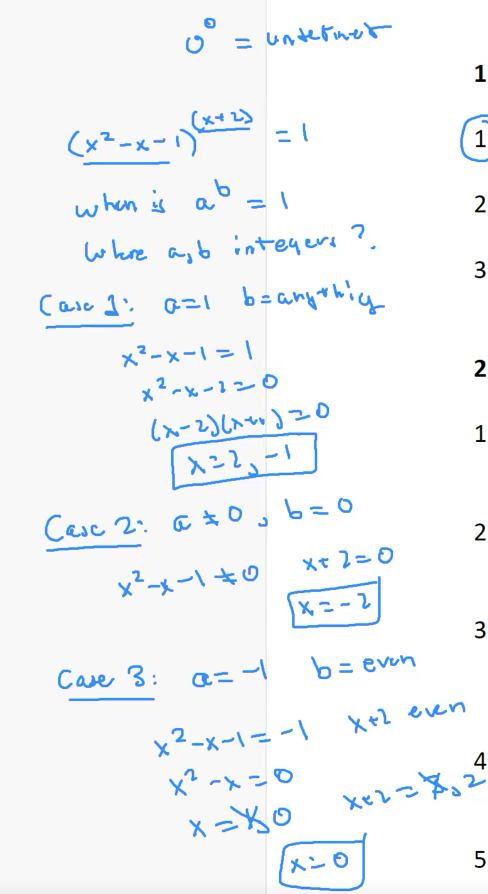 0^0 = undefined
(x²-x-1)^(x+2) = 1
when is a^b = 1
where a,b integers?
Case 1: a=1 b=anything
x²-x-1=1
x²-x-2=0
(x-2)(x+1)=0
x=2,-1
Case 2: a≠0, b=0
x²-x-1≠0 x+2=0
x=-2
Case 3: a=-1 b=even
x²-x-1=-1 x+2 even
x²-x=0
x= 0 x+2= 2
x=0
1
1
2
3
2
1
2
3
4
5